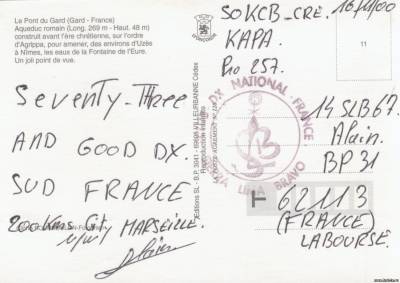 Le Pont du Gard (Gard - France)
Aqueduc romain (Long. 269 m - Haut. 48 m)
construit avant l'ère chrétienne, sur l'ordre
d'Agrippa, pour amener, des environs d'Uzès
à Nîmes, les eaux de la Fontaine de l'Eure.
Un joli point de vue.
SEVENTY-THREE
AND GOOD DX.
SUD FRANCE
200Kms MARSEILLE.
Editions SL - B.P. 3041 - 69605 VILLEURBANNE Cédex
Reproduction interdite
DX NATIONAL - FRANCE
LIMA BRAVO
SOKCB_CRE. 16/11/00
KAPA.
Pro 257.
11
14 SLB 67.
Alain.
BP 31
62113
(FRANCE)
LABOURSE.